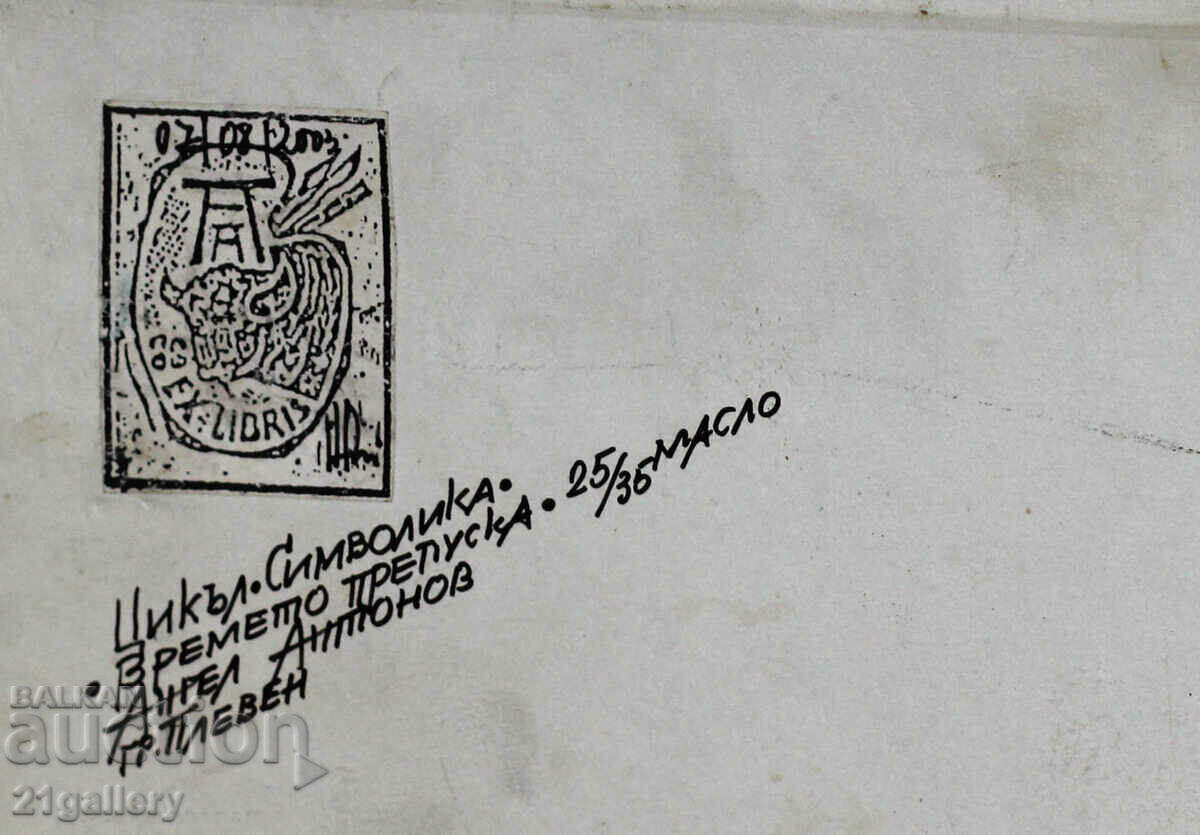 07|08|2003
EX-LIBRIS
Цикъл • Символика •
• Времето препуска • 25/35 масло
Ангел Антонов
гр. Плевен
BALKAN
auction
21gallery